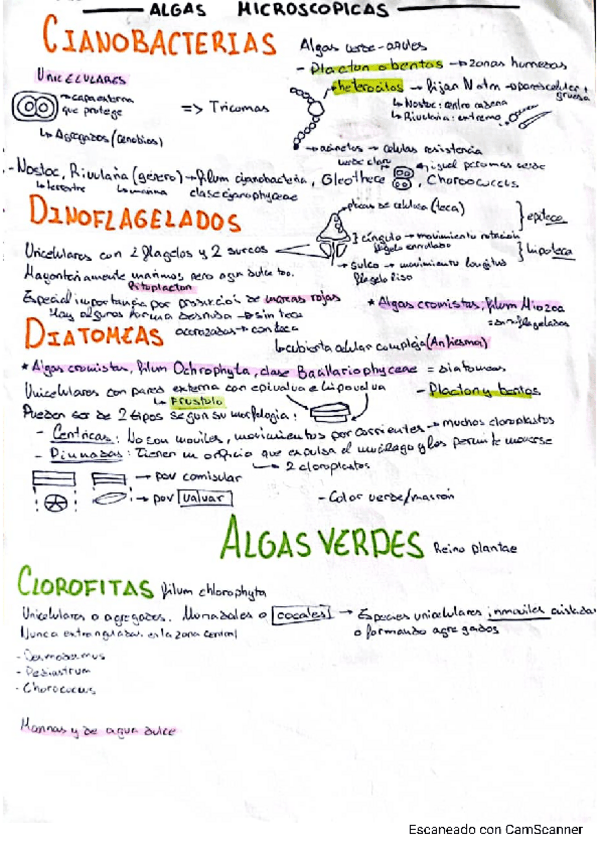 ALGAS MICROSCOPICAS
CIANOBACTERIAS
Algas verde-azules
- Placton o bentos → zonas humedas
UNICELULARES
→ capa externa
que protege
=> Tricomas
heterocitos → fijan N atm → pared celular + gruesa
↳ Nostoc: entre cadena
↳ Rivularia: extremo
↳ Agregados (cenobios)
→ acinetos → celulas resistencia
- Nostoc, Rivularia (género) → filum cianobacteria, Gleothece, Chroococcus
↳ terrestre ↳ marina clase cyanophyceae
verde claro
igual pero mas verde
DINOFLAGELADOS
→ placas de celulosa (teca)
} epiteca
} cíngulo → movimiento rotacion
flagelo enrollado
} hipoteca
→ sulco → movimiento longitud
flagelo liso
Unicelulares con 2 flagelos y 2 surcos
Mayoritariamente marinos pero agua dulce tbn.
Fitoplacton
Especial importancia por produccion de mareas rojas
* Algas cromistas, filum Miozoa
= dinoflagelados
Hay algunos forma desnuda → sin teca
acorazadas → con teca
↳ cubierta celular compleja (Anfiesma)
DIATOMEAS
* Algas cromistas, filum Ochrophyta, clase Baallariophyceae = diatomeas
Unicelulares con pared externa con epivalva e hipovalva
↳ Frustulo
- Placton y bentos
Pueden ser de 2 tipos segun su morfologia:
- Centricas: No son moviles, movimientos por corrientes → muchos cloroplastos
- Pinnadas: Tienen un orificio que expulsa el mucilago y les permite moverse
→ 2 cloroplastos
→ pov comisular
→ pov valvar
- Color verde/marrón
ALGAS VERDES Reino plantae
CLOROFITAS filum chlorophyta
Unicelulares o agregados. Monadales o cocales → Especies unicelulares inmoviles aisladas
Nunca extranguladas en la zona central
o formando agregados
- Desmodesmus
- Pediastrum
- Chorococcus
Marinas y de agua dulce
Escaneado con CamScanner